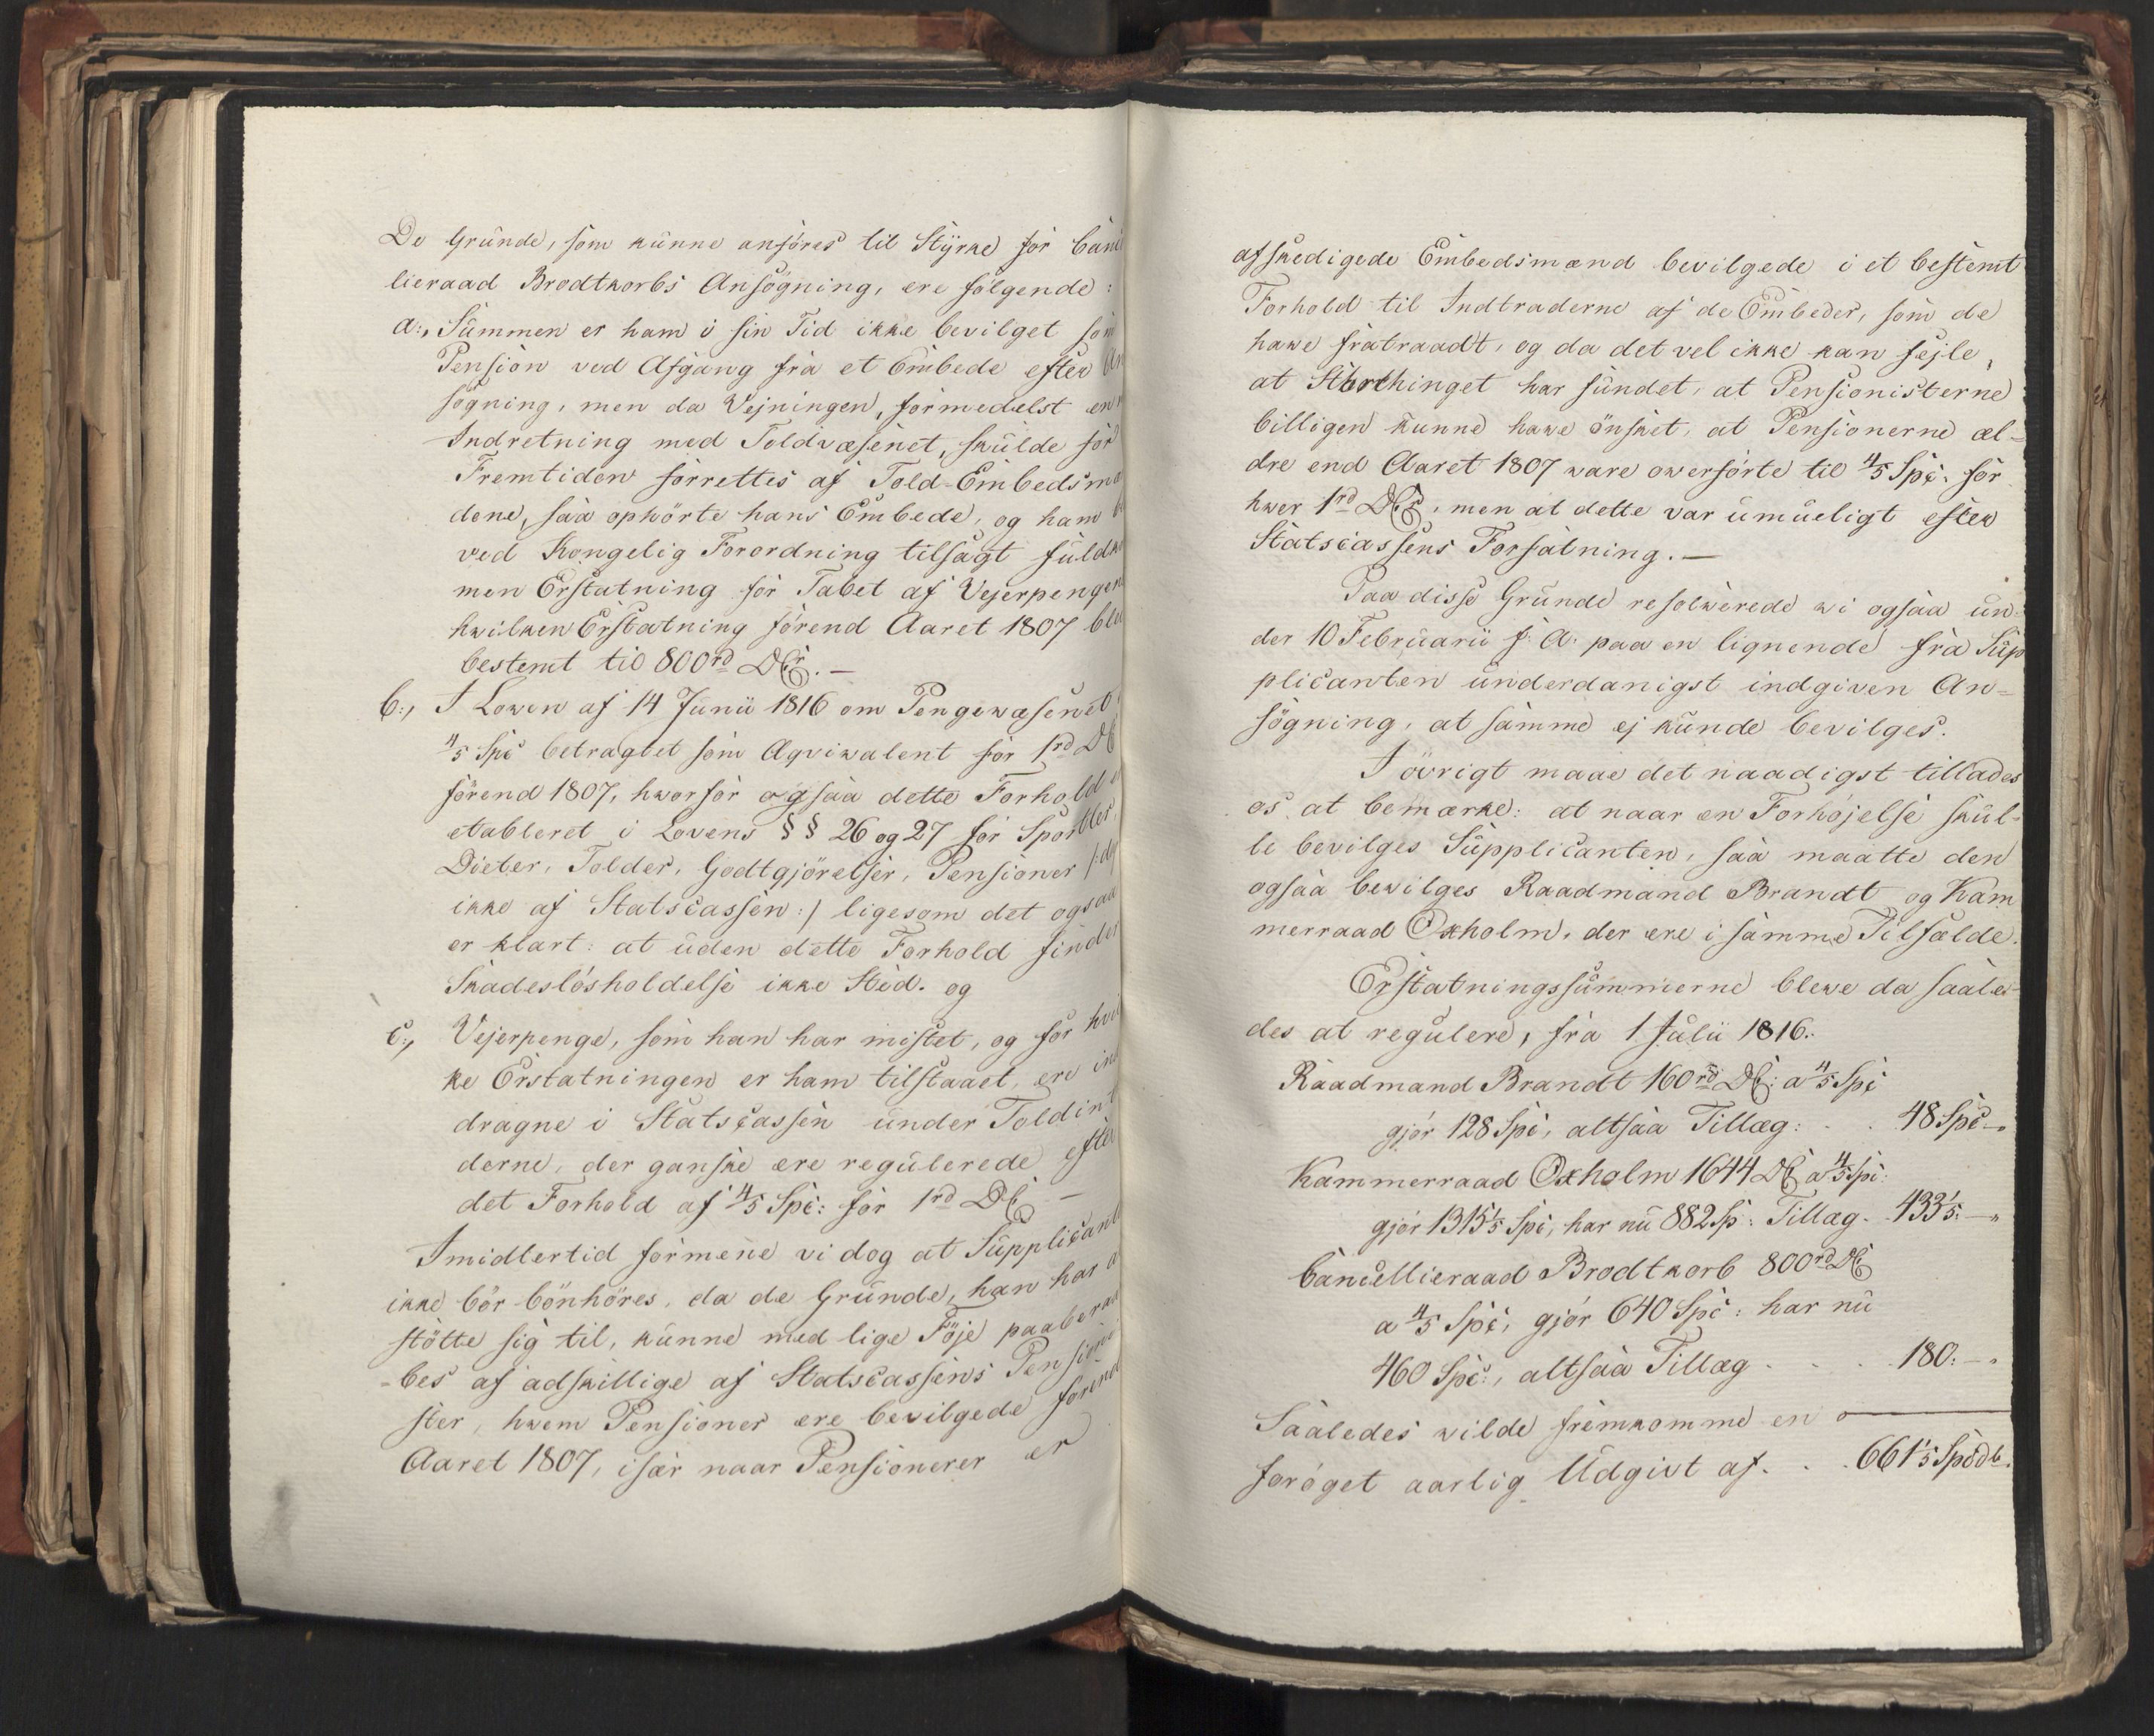 De Grunde, som kunne anföres til Styrke for Can
lieraad Brodtkorbs Ansögning, ere fölgende:
a:, Summen er ham i sin Tid ikke bevilget som
Pension ved Afgang fra et Embede efter An
sögning, men da Vejningen, formedelst en
Indretning med Toldvæsenet, skulde for
Fremtiden forrettes af Told-Embedsmæ
dene, saa ophörte hans Embede, og ham
ved Kongelig Forordning tilsagt fuldko
men Erstatning for Tabet af Vejerpengen
hvilken Erstatning förend Aaret 1807 blev
bestemt til 800 rd DCr. —
b:, I Loven af 14 Junii 1816 om Pengevæsenet
4/5 Spc betragtet som Æqvivalent for 1 rd DC
förend 1807, hvorfor ogsaa dette Forhold er
etableret i Lovens §§ 26 og 27 for Sportler,
Dieter, Tolder, Godtgjörelser, Pensioner /:dog
ikke af Statscassen:/ ligesom det ogsaa
er klart: at uden dette Forhold finder
Skadeslösholdelse ikke Sted. og
c:, Vejerpenge, som han har mistet, og for hvil
ke Erstatningen er ham tilstaaet, ere ind
dragne i Statscassen under Toldint
derne, der ganske ere regulerede efter
det Forhold af 4/5 Spc: for 1 rd DC —
Imidlertid formene vi dog at Supplicant
ikke bör bönhöres, da de Grunde, han har a
stötte sig til, kunne med lige Föje paaberaa
-bes af adskillige af Statscassens Pensioni
ster, hvem Pensioner ere bevilgede förend
Aaret 1807, især naar Pensionerer er
afskedigede Embedsmænd bevilgede i et bestemt
Forhold til Indtraderne af de Embeder, som de
have fratraadt, og da det vel ikke kan fejle,
at Storthinget har fundet, at Pensionisterne
billigen kunne have önsket, at Pensionerne æl-
dre end Aaret 1807 vare overförte til 4/5 Spc. for
hver 1 rd DCr, men at dette var umueligt efter
Statscassens Forfatning. —
Paa disse Grunde resolverede vi ogsaa un-
der 10 Februarii f: A: paa en lignende fra Sup
plicanten underdanigst indgiven An=
sögning, at samme ej kunde bevilges.
I övrigt maae det naadigst tillades
os at bemærke: at naar en Forhöjelse skul-
le bevilges Supplicanten, saa maatte den
ogsaa bevilges Raadmand Brandt og Kam
merraad Oxholm, der ere i samme Tilfælde.
Erstatningssummerne bleve da saale-
des at regulere, fra 1 Julii 1816:
Raadmand Brandt 160 rd DC: a 4/5 Spc
gjör 128 Spc, altsaa Tillæg: . . 48 Spc —„
Kammerraad Oxholm 1644 DC a 4/5 Spc:
gjör 1315 1/5 Spc, har nu 882 Sp: Tillæg . 433 1/5. —„
Cancellieraad Brodtkorb 800 rd DC
a 4/5 Spc, gjör 640 Spc: har nu
460 Spc:, altsaa Tillæg . . . 180: —„
Saaledes vilde fremkomme en
foröget aarlig Udgivt af. . . 661 1/5 Spcdlr.